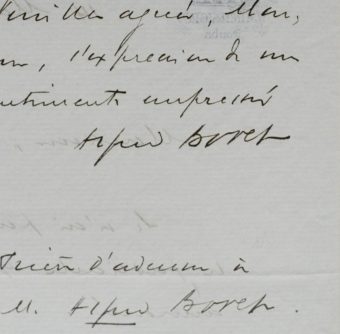 Veuillez agréer, Mon,
, l'expression de mes
sentiments empressés
Alfred Bovet
Prière d'adresser à
M. Alfred Bovet.